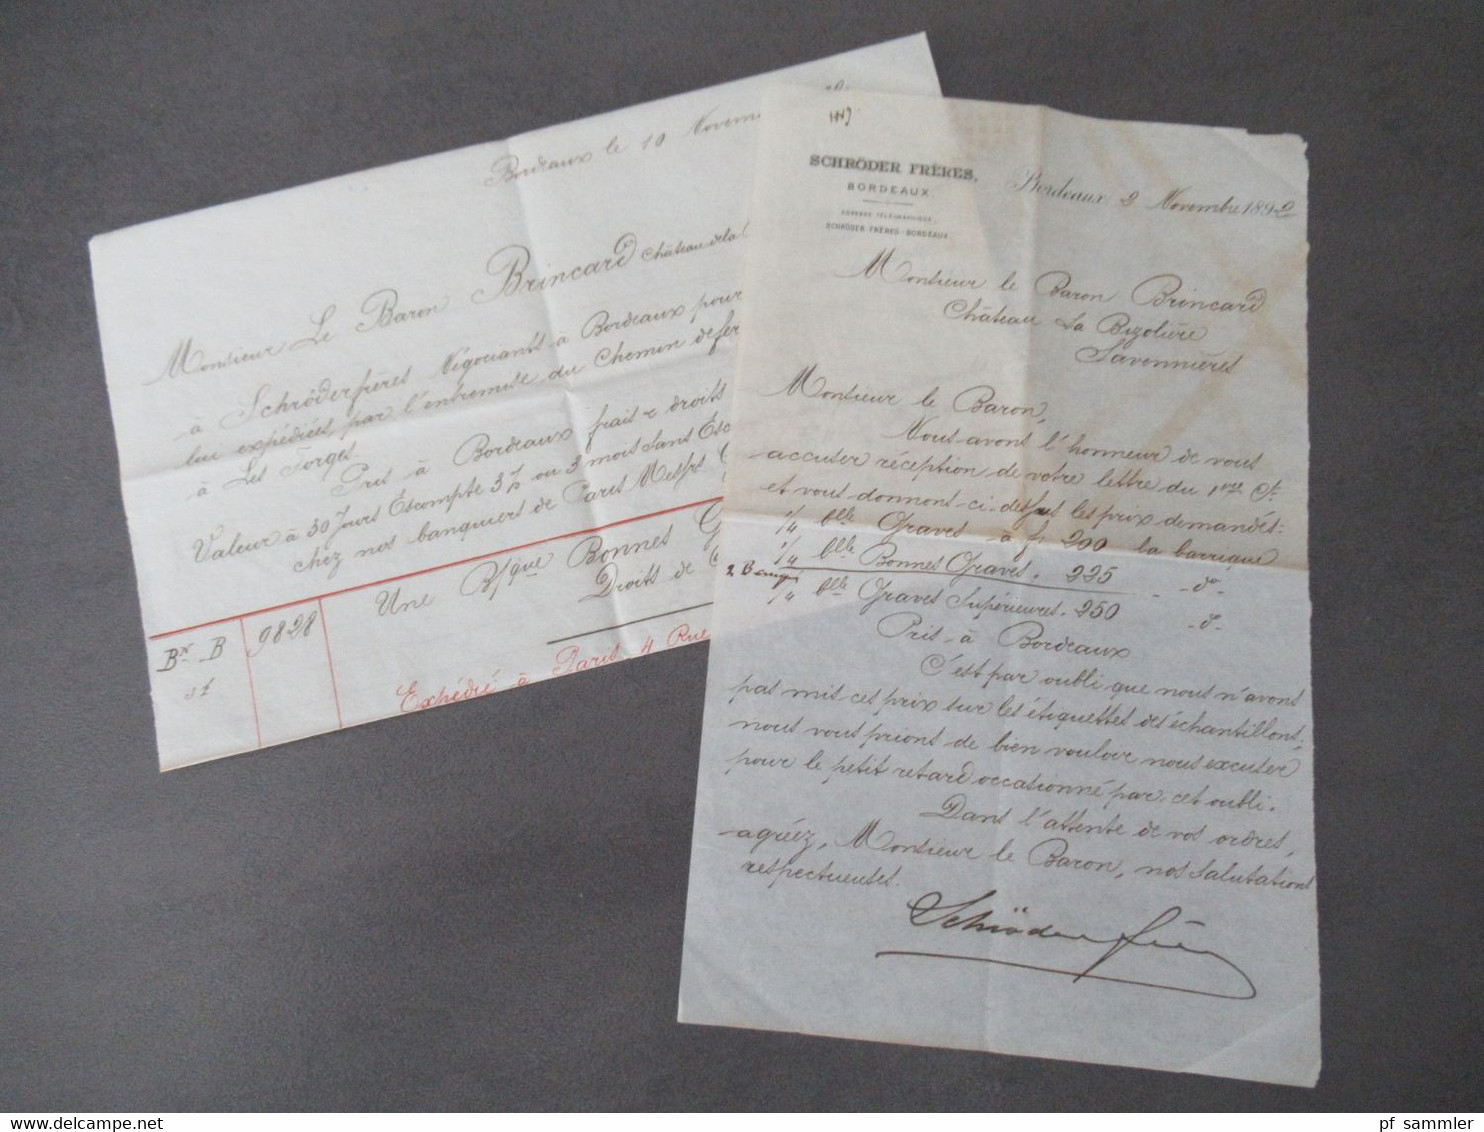 Bordeaux le 10 Novem
Monsieur Le Baron Brincard Château de la
à Schröder frères Négociants à Bordeaux pour
lui expédiées par l'entremise du Chemin de fer
à Les Forges
Pris à Bordeaux frais & droits
Valeur à 30 Jours Escompte 3% ou 3 mois sans Esc
chez nos banquiers de Paris Mess
Une B/que Bonnes G
Droits de
BN B 9828
st
Expédié à Paris, 4 Rue
SCHRÖDER FRÈRES,
BORDEAUX.
ADRESSE TÉLÉGRAPHIQUE:
SCHRÖDER FRÈRES-BORDEAUX.
Bordeaux 2 Novembre 189
Monsieur le Baron Brincard
Château La Bizolière
Savennières
Monsieur le Baron,
Nous avons l'honneur de vous
accuser réception de votre lettre du 1er Ct.
et vous donnons ci-dessous les prix demandés:
1/4 blle Graves à f. 200 la barrique
1/4 blle Bonnes Graves. 225 - do-
1/4 blle Graves Supérieures. 250 - do-
Pris à Bordeaux
C'est par oubli que nous n'avons
pas mis ces prix sur les étiquettes des échantillons,
nous vous prions de bien vouloir nous excuser
pour le petit retard occasionné par cet oubli.
Dans l'attente de vos ordres,
agréez, Monsieur le Baron, nos salutations
respectueuses.
Schröder frères
pf_sammler